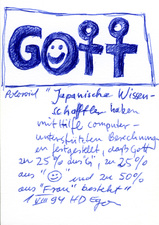 GOTT
Polaroid "Japanische Wissen-
schaftler haben
mit Hilfe computer-
unterstützten Berechnungen
festgestellt, daß Gott
zu 25% aus "G", zu 25%
aus "☺" und zu 50%
aus "Frau" besteht"
94 HD